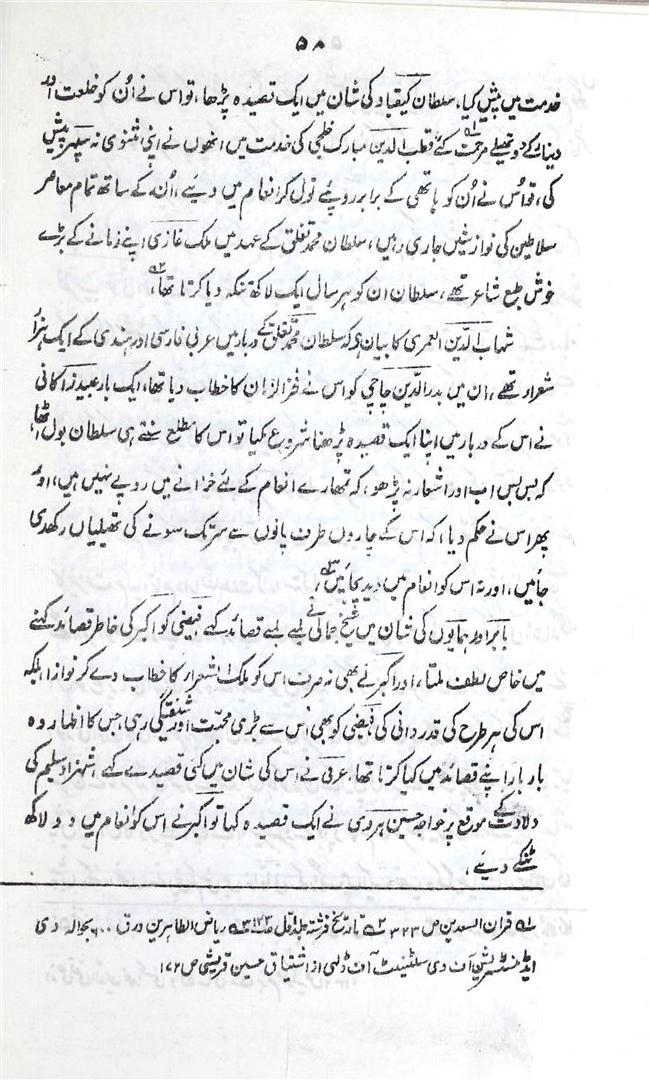 ۵۸
خدمت میں پیش کیا، سلطان کیقباد کی شان میں ایک قصیدہ پڑھا، تو اس نے اُن کو خلعت اور
دینار کے دو تھیلے مرحمت کئے، قطب الدین مبارک خلجی کی خدمت میں انھوں نے اپنی مثنوی نہ سپہر پیش
کی، تو اس نے اُن کو ہاتھی کے برابر روپئے تول کر انعام میں دیئے، اُن کے ساتھ تمام معاصر
سلاطین کی نوازشیں جاری رہیں، سلطان محمد تغلق کے عہد میں ملک غازی اپنے زمانے کے بڑے
خوش طبع شاعر تھے، سلطان ان کو ہر سال ایک لاکھ تنکہ دیا کرتا تھا،
شہاب الدین العمری کا بیان ہے کہ سلطان محمد تغلق کے دربار میں عربی فارسی اور ہندی کے ایک ہزار
شعراء تھے، ان میں بدر الدین چاچی کو اس نے فخر الزمان کا خطاب دیا تھا، ایک بار عبید زاکانی
نے اس کے دربار میں اپنا ایک قصیدہ پڑھنا شروع کیا تو اس کا مطلع سنتے ہی سلطان بول اٹھا،
کہ بس بس اب اور اشعار نہ پڑھو، کہ تمھارے انعام کے لئے خزانے میں روپے نہیں ہیں، اور
پھر اس نے حکم دیا، کہ اس کے چاروں طرف پانوں سے سر تک سونے کی تھیلیاں رکھدی
جائیں، اور سب اس کو انعام میں دیدیجائیں،
بابر اور ہمایوں کی شان میں شیخ جمالی نے لمبے لمبے قصائد کہے فیضی کو اکبر کی خاطر قصائد کہنے
میں خاص لطف ملتا، اور اکبر نے بھی نہ صرف اس کو ملک الشعراء کا خطاب دے کر نوازا، بلکہ
اس کی ہر طرح کی قدر دانی کی، فیضی کو بھی اس سے بڑی محبت اور شیفتگی رہی جس کا اظہار وہ
بار بار اپنے قصائد میں کیا کرتا تھا، عرفی نے اس کی شان میں کئی قصیدے کہے، شہزادہ سلیم کی
ولادت کے موقع پر خواجہ حسین ہروی نے ایک قصیدہ کہا تو اکبر نے اس کو انعام میں دو لاکھ
ٹنکے دیئے،
۱؎ قران السعدین ص ۳۲۳ ۲؎ تاریخ فرشتہ جلد اول ص ۱۳۳ ۳؎ ریاض الطاہرین ورق ۶۰۰ بحوالہ دی
ایڈمنسٹریشن آف دی سلٹینٹ آف دہلی از اشتیاق حسین قریشی ص ۱۷۲